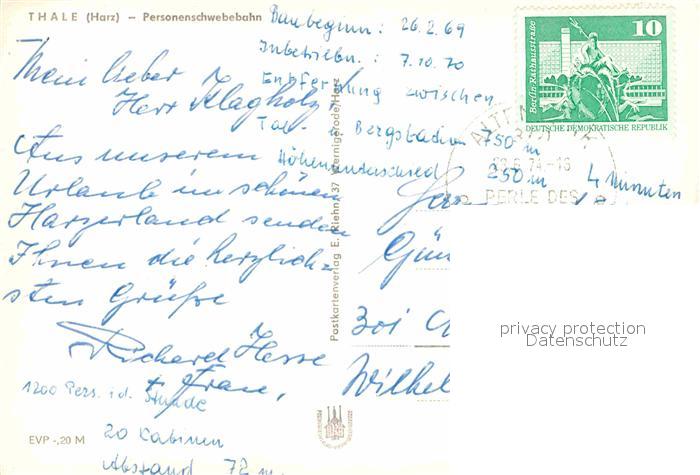 THALE (Harz) — Personenschwebebahn
Baubeginn: 26.2.69
Inbetriebn.: 7.10.70
Entfernung zwischen
Tal- Bergstation 750 m
Höhenunterschied 250 m 4 Minuten
Mein lieber
Herr Klagholz!
Aus unserem
Urlaub im schönen
Harzerland senden
Ihnen die herzlich-
sten Grüße
Richard Hesse
+ Frau,
1200 Pers. i.d. Stunde
20 Kabinen
Abstand 72 m
EVP -,20 M
Postkartenverlag E. Riehn, 37 Wernigerode/Harz
Berlin-Rathausstraße
10
DEUTSCHE DEMOKRATISCHE REPUBLIK
ALTEN
6.74-16
PERLE DES
Gün
301
Wilhel
privacy protection
Datenschutz